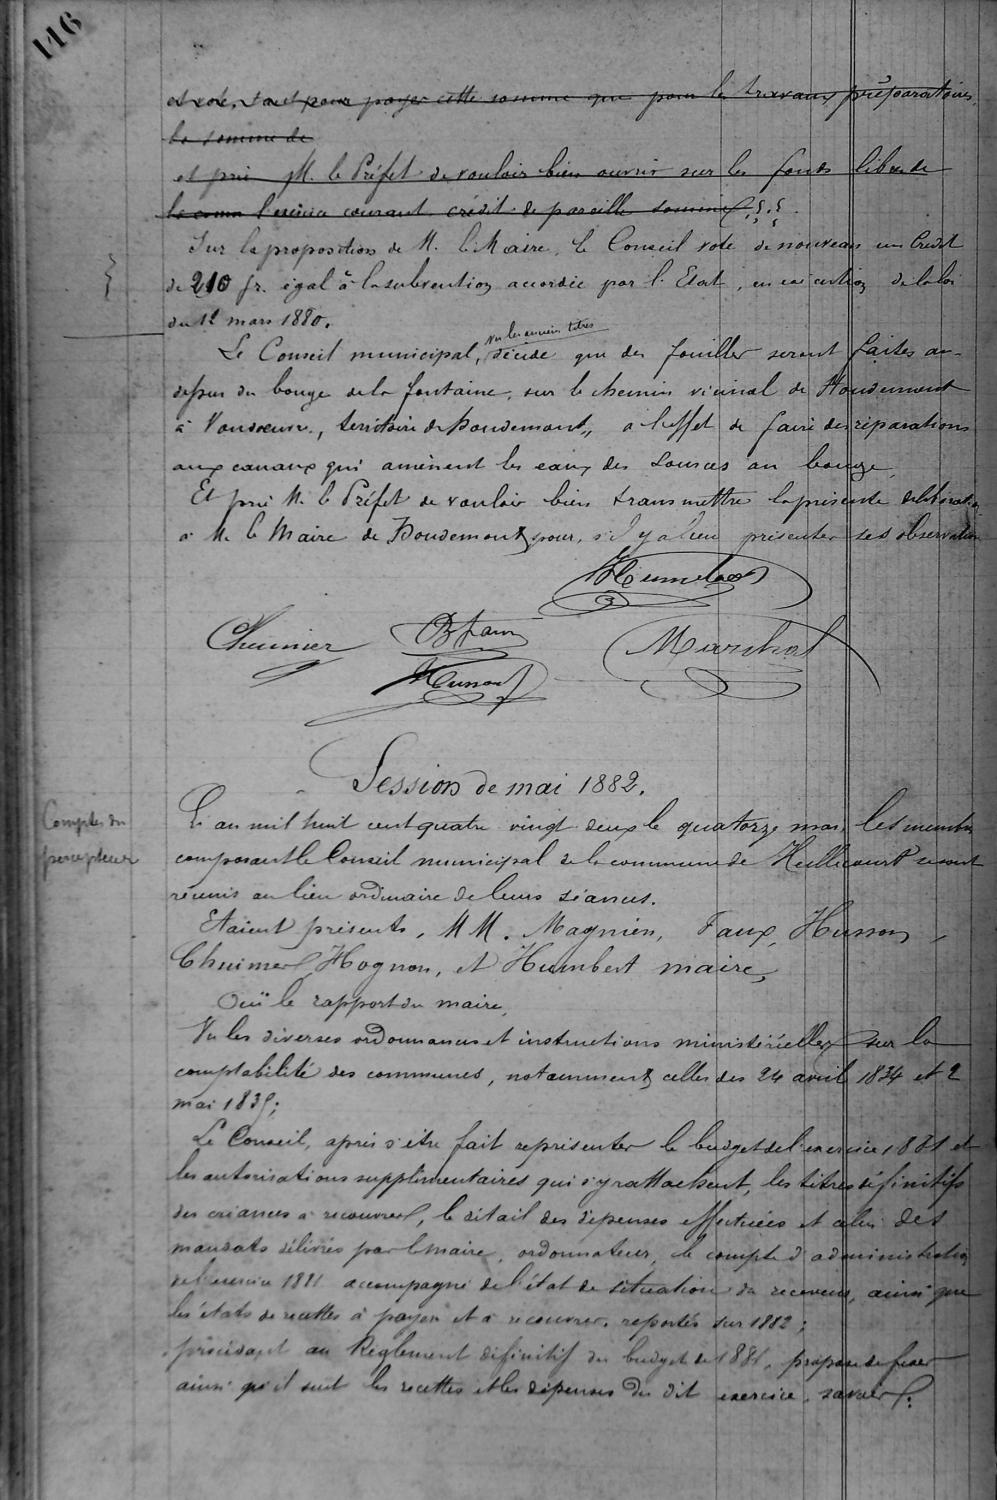 116
et vote, tant pour payer cette somme que pour les travaux préparatoires,
la somme de
et prie M. le Préfet de vouloir bien ouvrir sur les fonds libres de
la comm l'exercice courant crédit de pareille somme.
Sur la proposition de M. le Maire, le Conseil vote de nouveau un Crédit
de 210 fr. égal à la subvention accordée par l'Etat, en exécution de la loi
du 12 mars 1880.
vu les anciens titres
Le Conseil municipal, décide que des fouilles seront faites au-
dessus du bouge de la fontaine, sur le chemin vicinal de Houdemont
à Vandoeuvre, territoire de houdemont, à l'effet de faire des réparations
aux canaux qui amènent les eaux des sources au bouge
Et prie M. le Préfet de vouloir bien transmettre la présente délibération
à M. le Maire de Houdemont pour, s'il y a lieu présenter ses observations
Humbert
Chuimer Faux Marchal
Husson
Session de mai 1882.
Comptes du
percepteur
L'an mil huit cent quatre vingt deux le quatorze mai, les membres
composant le Conseil municipal de la commune de Heillecourt se sont
réunis au lieu ordinaire de leurs séances.
Etaient présents, MM. Magnien, Faux, Husson,
Chuimer, Hognon, et Humbert maire,
Ouï le rapport du maire,
Vu les diverses ordonnances et instructions ministérielles sur la
comptabilité des communes, notamment celles des 24 avril 1834 et 2
mai 1835;
Le Conseil, après s'être fait représenter le budget de l'exercice 1881 et
les autorisations supplémentaires qui s'y rattachent, les titres définitifs
des créances à recouvrer, le détail des dépenses effectuées et celui des
mandats délivrés par le maire, ordonnateur, le compte d'administration
de l'exercice 1881 accompagné de l'état de situation du receveur, ainsi que
les états de recettes à payer et à recouvrer, reportés sur 1882;
procédant au Règlement définitif du budget de 1881, propose de fixer
ainsi qu'il suit les recettes et les dépenses du dit exercice, savoir: